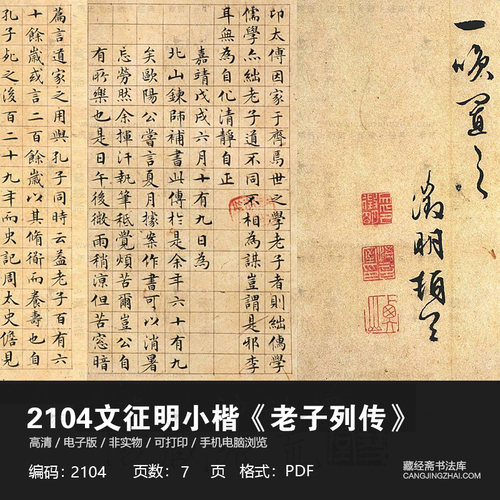 徵明頓首
印太傅因家于齊焉世之學老子者則絀儒學
儒學亦絀老子道不同不相為謀豈謂是邪李
耳無為自化清靜自正
嘉靖戊戌六月十有九日為
北山鍊師補書此傳於是余年六十有九
矣歐陽公嘗言夏月據案作書可以消暑
忘勞然余揮汗執筆秪覺煩苦爾豈公自
有所樂也是日午後微雨稍涼但苦窓暗
篇言道家之用與孔子同時云葢老子百有六
十餘歲或言二百餘歲以其脩衜而養壽也自
孔子死之後百二十九年而史記周太史儋見
2104文征明小楷《老子列传》
高清 / 电子版 / 非实物 / 可打印 / 手机电脑浏览
编码: 2104 页数: 7 页 格式: PDF
藏经斋书法库
CANGJINGZHAI.COM